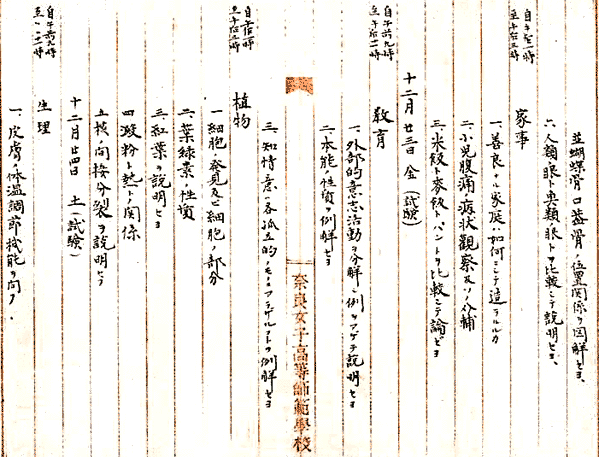 並蝴蝶骨口蓋骨ノ位置関係ヲ図解セヨ、
六、人類ノ眼ト魚類ノ眼トヲ比較シテ説明セヨ、
自午后一時
至午后三時
家事
一、善良ナル家庭ハ如何ニシテ造ラルルカ
二、小児腹痛ノ病状観察及ソノ介輔
三、米飯ト麥飯トパントヲ比較シテ論ゼヨ
十二月廿三日 金(試験)
自午前九時
至午前十一時
教育
一、外部的意志活動ヲ分解シ例ヲアゲテ説明セヨ
二、本能ノ性質ヲ例解セヨ
三、知情意ノ各孤立的ノモノニアラザルコトヲ例解セヨ
奈良女子高等師範學校
自午后一時
至午后三時
植物
一、細胞ノ発見及ビ細胞ノ部分
二、葉緑素ノ性質
三、紅葉ノ説明セヨ
四、澱粉ト熱トノ関係
五、核ノ間接分裂ヲ説明セヨ
十二月廿四日 土(試験)
自午前九時
至〃十一時
生理
一、皮膚ノ体温調節機能ヲ問フ、